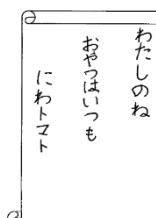 わたしのね
おやつはいつも
にわトマト